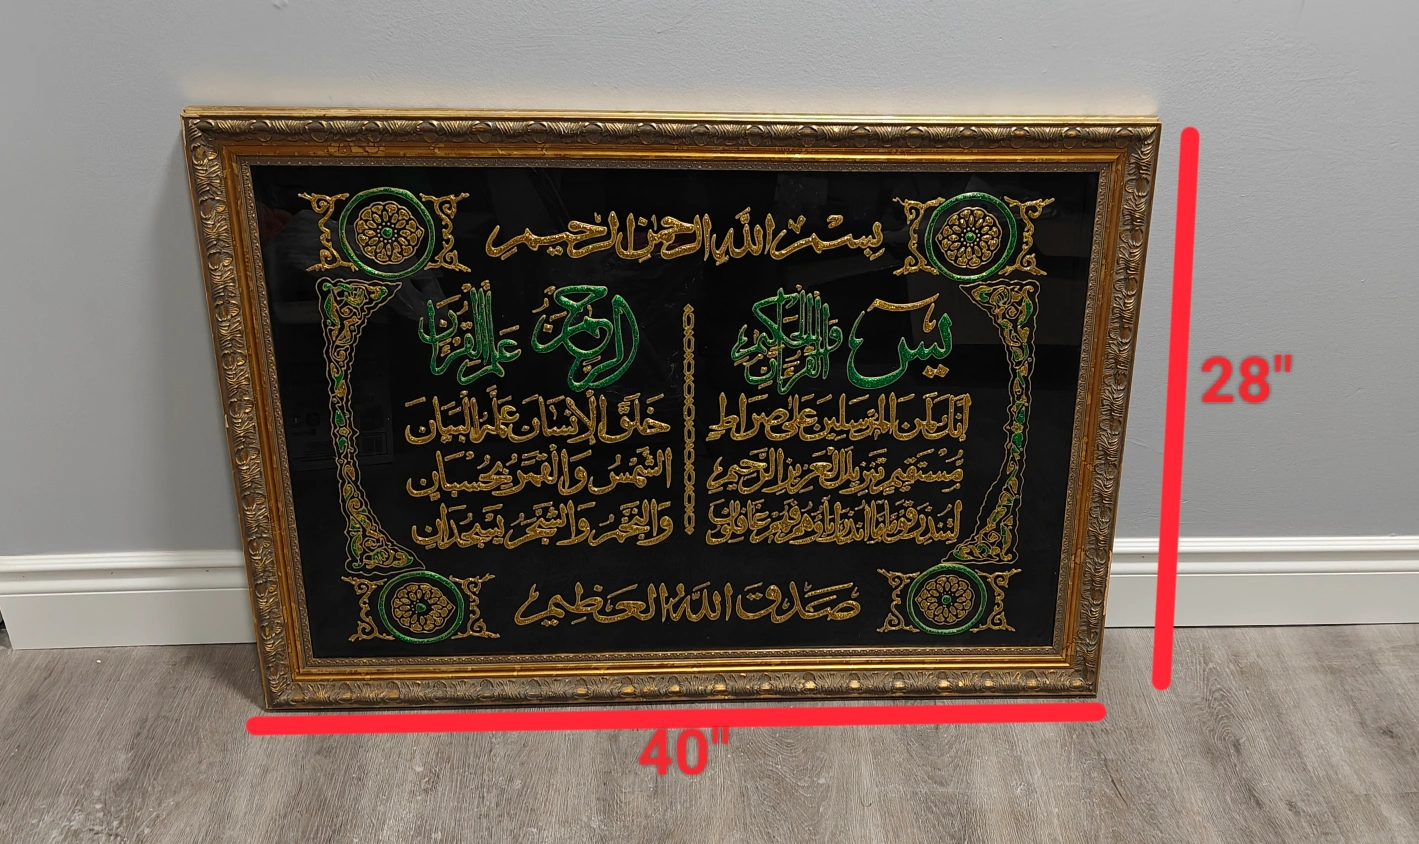 بسم الله الرحمن الرحيم
يس والقرءان الحكيم
إنك لمن المرسلين على صراط
مستقيم تنزيل العزيز الرحيم
لتنذر قوما ما أنذر اباؤهم فهم غافلون
الرحمن علم القرءان
خلق الإنسان علمه البيان
الشمس والقمر بحسبان
والنجم والشجر يسجدان
صدق الله العظيم
28"
40"